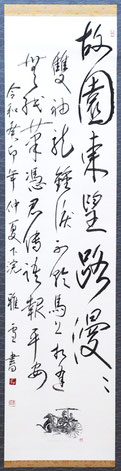 故園東望路漫〻
雙袖龍鍾淚不乾馬上相逢
無紙筆憑君傳語報平安
令和癸卯年仲夏下浣 雅 書